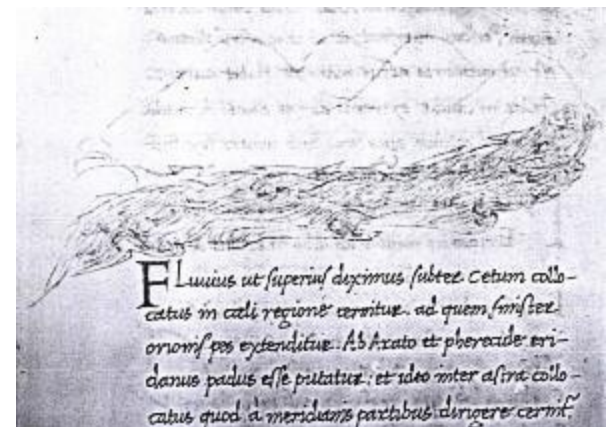 FLuuius ut superius diximus subter Cetum collo-
catus in cæli regione cernitur. ad quem sinister
orionis pes extenditur. Ab Arato et pherecide eri-
danus padus esse putatur: et ideo inter astra collo-
catus quod a meridianis partibus dirigere cernit.